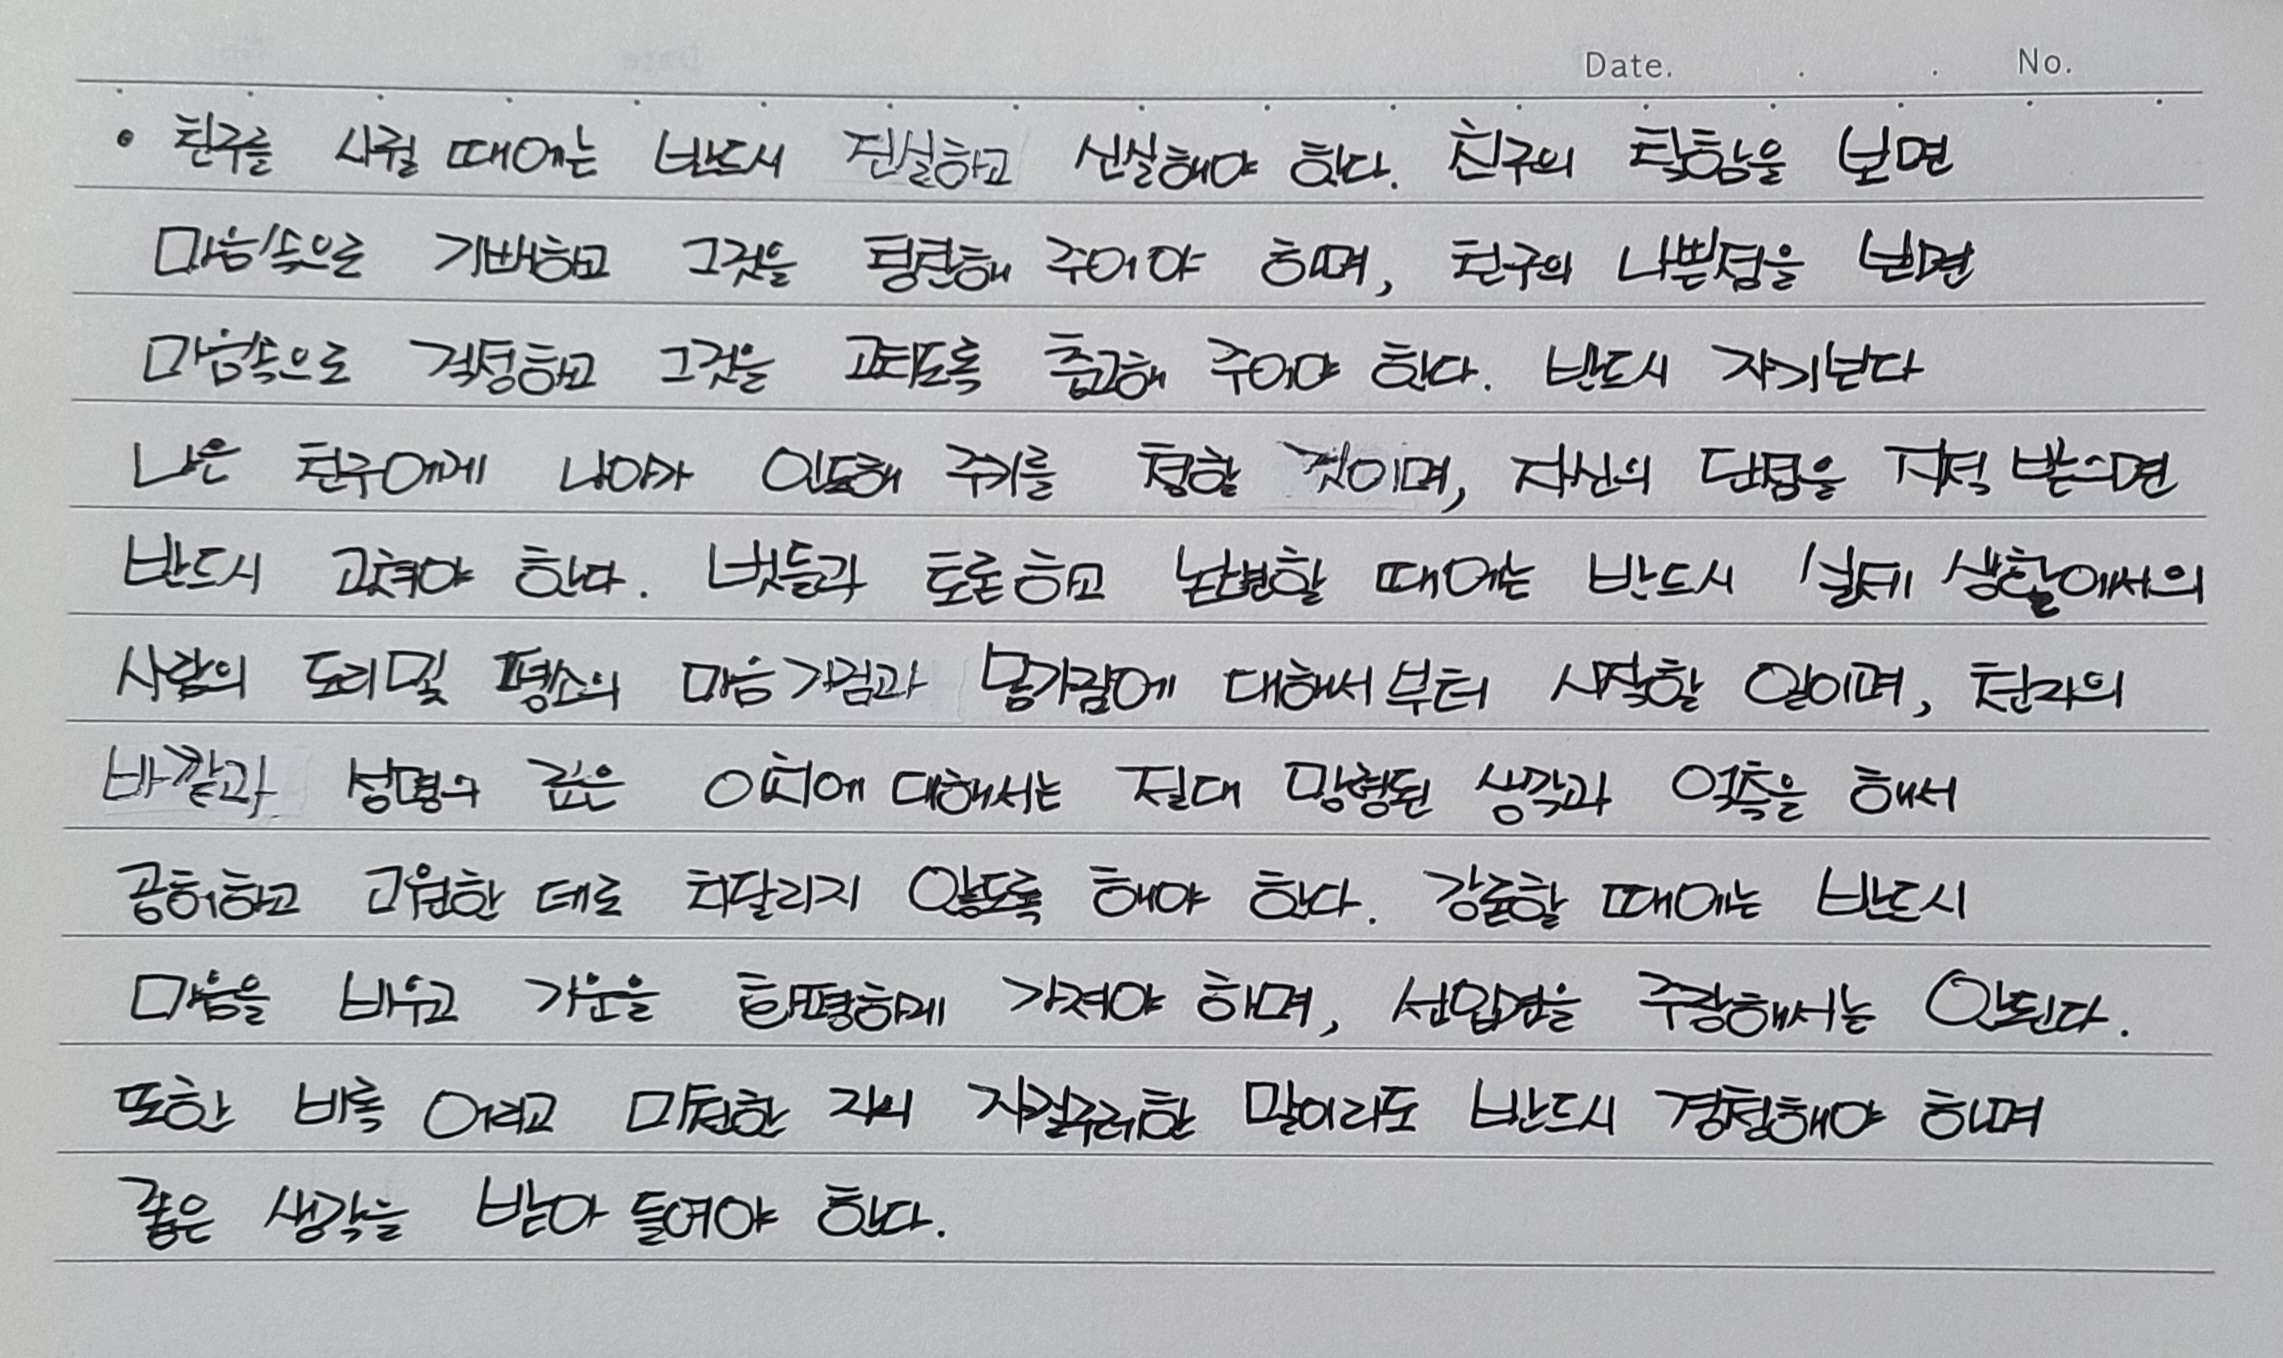 Date. . . No.
• 친구를 사귈 때에는 반드시 진실하고 신실해야 한다. 친구의 착함을 보면
마음속으로 기뻐하고 그것을 칭찬해 주어야 하며, 친구의 나쁜점을 보면
마음속으로 걱정하고 그것을 고치도록 충고해 주어야 한다. 반드시 자기보다
나은 친구에게 나아가 인도해 주기를 청할 것이며, 자신의 단점을 지적 받으면
반드시 고쳐야 한다. 벗들과 토론하고 논변할 때에는 반드시 실제 생활에서의
사람의 도리 및 평소의 마음가짐과 몸가짐에 대해서부터 시작할 일이며, 천지의
바깥과 성명의 깊은 이치에 대해서는 절대 망령된 생각과 억측을 해서
공허하고 고원한 데로 치달리지 않도록 해야 한다. 강론할 때에는 반드시
마음을 비우고 기운을 화평하게 가져야 하며, 선입견을 주장해서는 안된다.
또한 비록 어리고 미천한 자의 지껄구레한 말이라도 반드시 경청해야 하며
좋은 생각을 받아 들여야 한다.